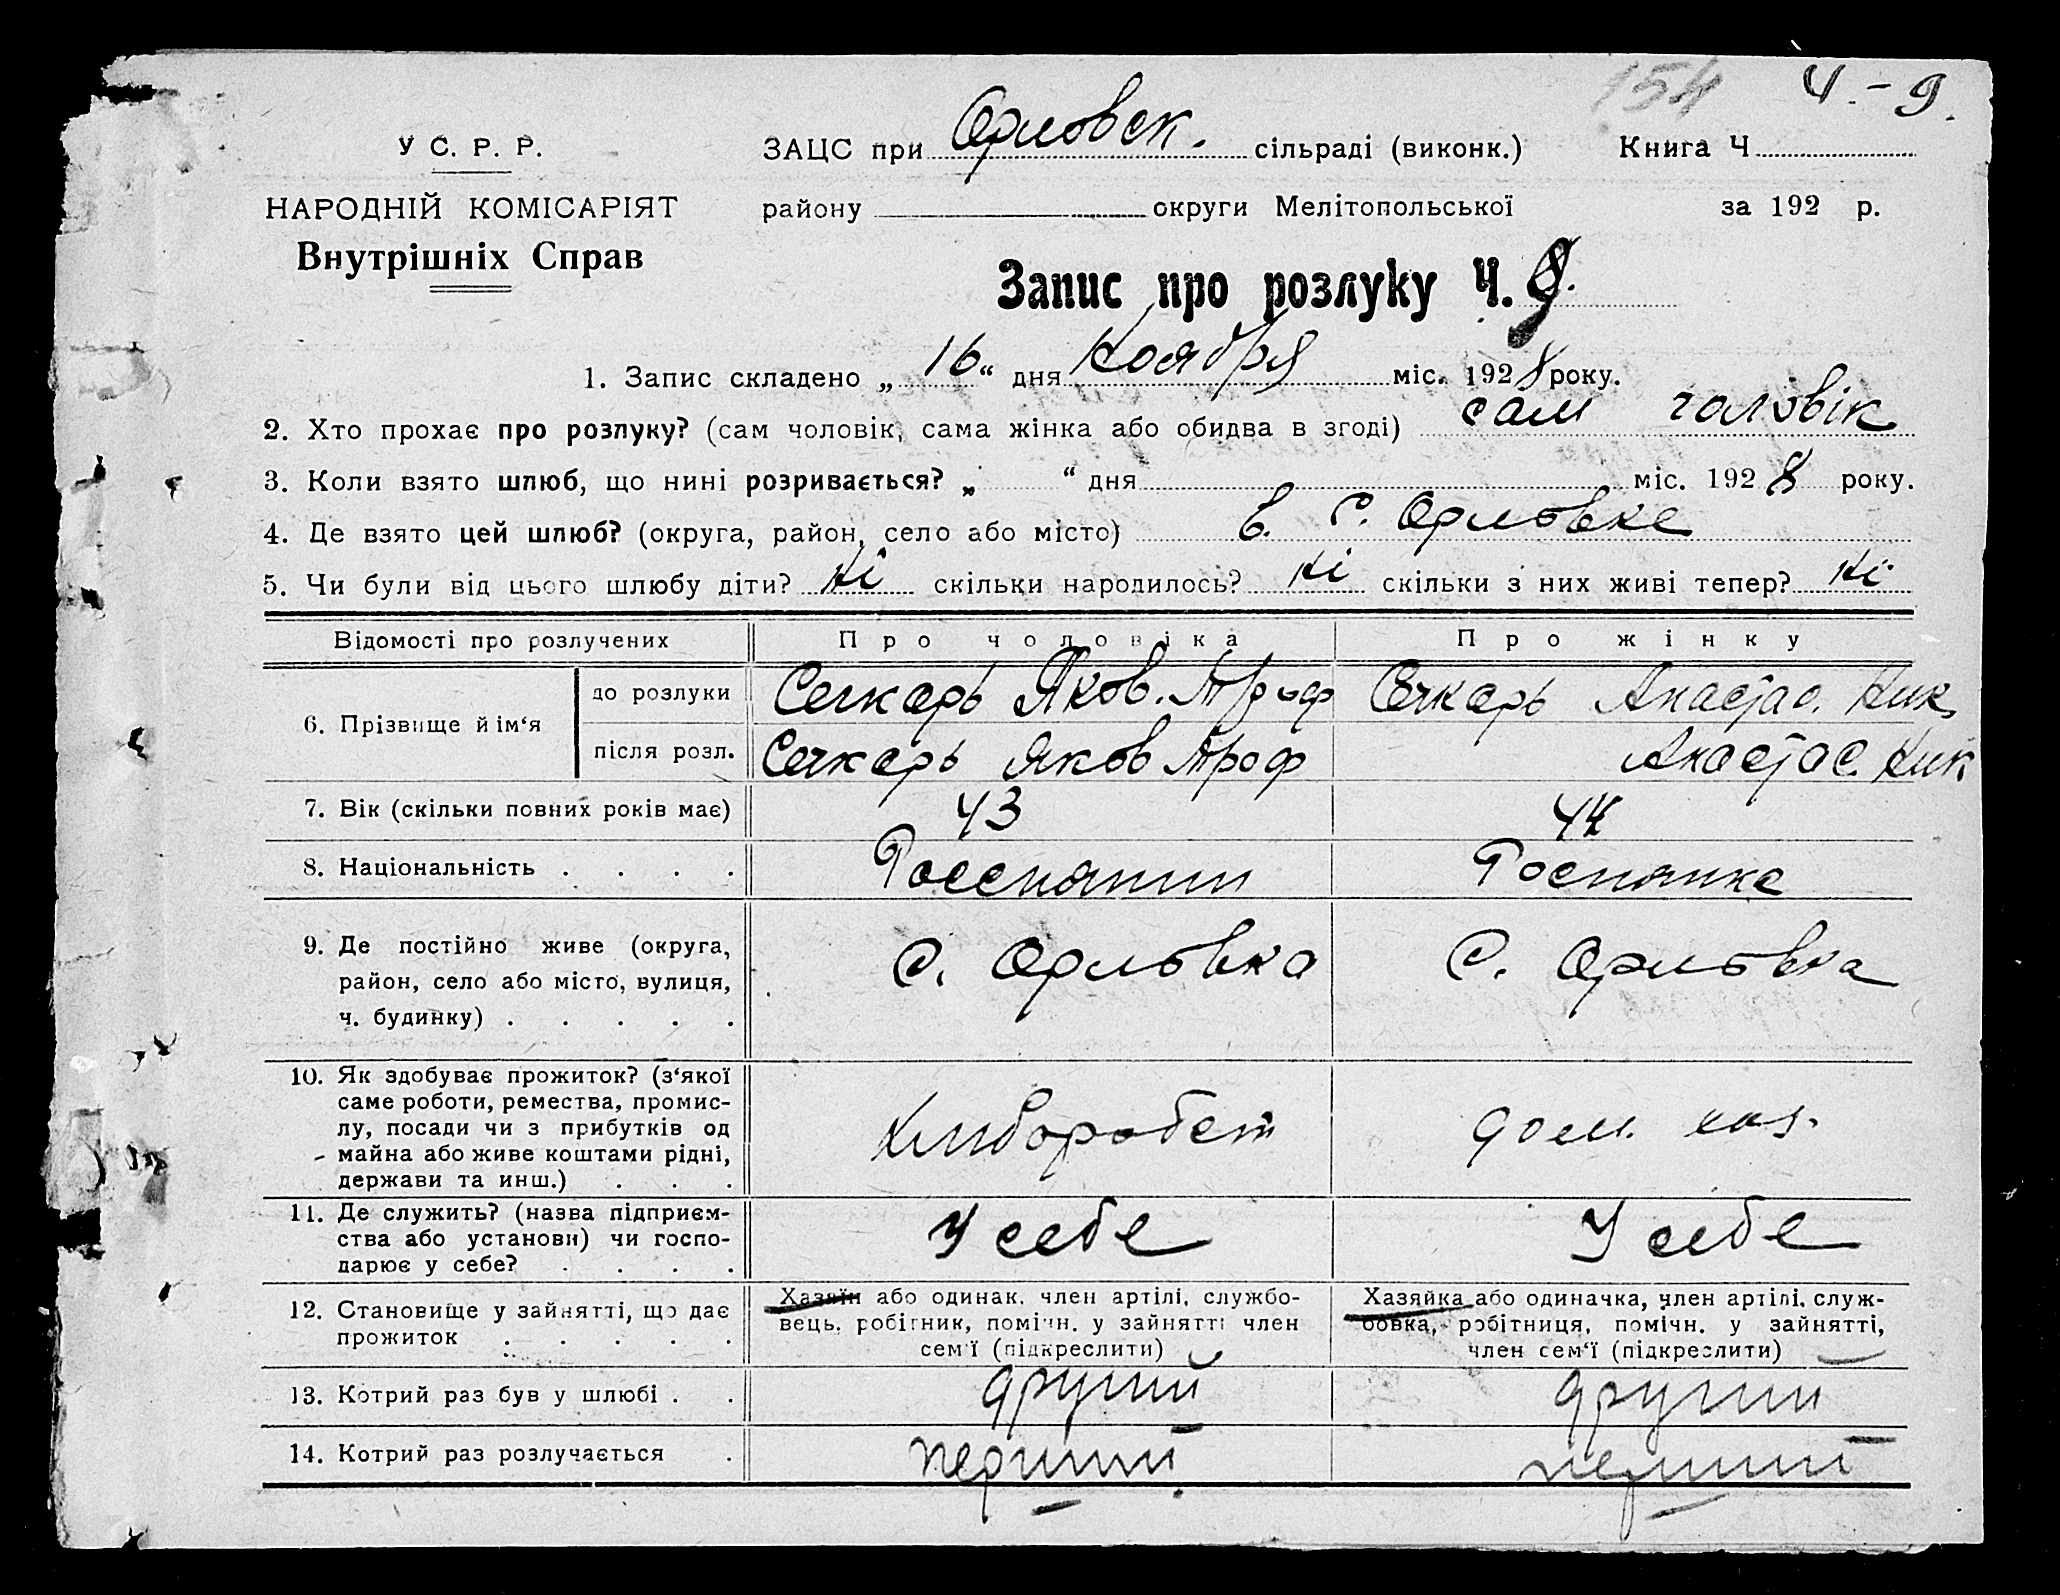 154 Ч.-9.
У С. Р. Р. ЗАЦС при Орловск. сільраді (виконк.) Книга Ч
НАРОДНІЙ КОМІСАРІЯТ району округи Мелітопольської за 192 р.
Внутрішніх Справ
Запис про розлуку Ч. 9.
1. Запис складено „ 16 “ дня Ноября міс. 1928 року.
2. Хто прохає про розлуку? (сам чоловік, сама жінка або обидва в згоді) сам чоловік
3. Коли взято шлюб, що нині розривається? „ “ дня міс. 1928 року.
4. Де взято цей шлюб? (округа, район, село або місто) в. с. Орловке
5. Чи були від цього шлюбу діти? Ні скільки народилось? Ні скільки з них живі тепер? Ні
Відомості про розлучених Про чоловіка Про жінку
6. Прізвище й ім‘я
до розлуки Сечкарь Яков. Троф Сечкарь Анастас. Ник
після розл. Сечкарь Яков Троф Анастас. Ник
7. Вік (скільки повних років має) 43 44
8. Національність . . . . Россиянин Росиянка
9. Де постійно живе (округа,
район, село або місто, вулиця,
ч. будинку) . . . . .
с. Орловка с. Орловка
10. Як здобуває прожиток? (з‘якої
саме роботи, ремества, промис-
лу, посади чи з прибутків од
майна або живе коштами рідні,
держави та инш.) . . .
Хлібороб дом. хоз.
11. Де служить? (назва підприєм-
ства або установи) чи госпо-
дарює у себе? . . . .
У себе У себе
12. Становище у зайнятті, що дає
прожиток . . . . .
Хазяїн або одинак, член артілі, службо-
вець, робітник, помічн. у зайнятті член
сем‘ї (підкреслити)
Хазяйка або одиначка, член артілі, служ-
бовка, робітниця, помічн. у зайнятті,
член сем‘ї (підкреслити)
13. Котрий раз був у шлюбі . . другий другий
14. Котрий раз розлучається . перший перший